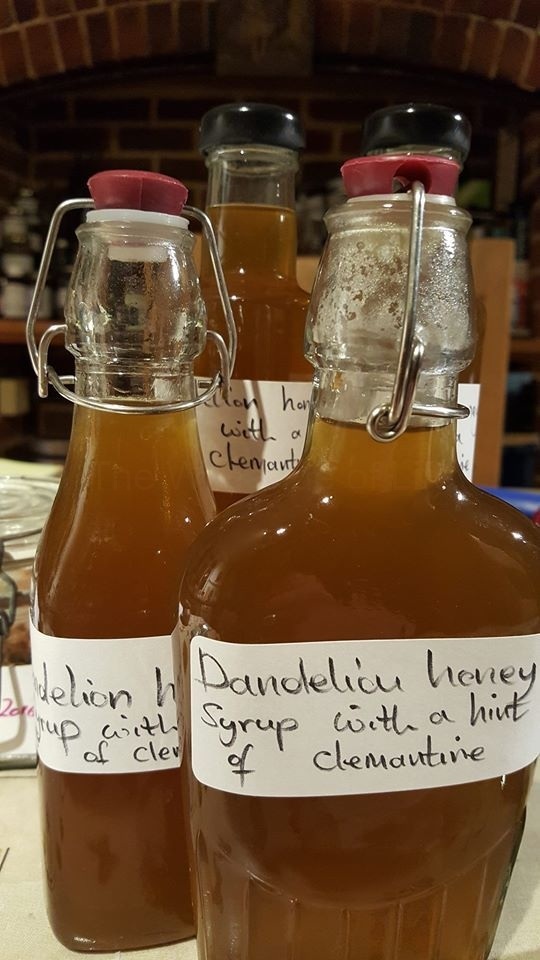 lion hon
with a
clemant
delion h
yrup with
of cle
Dandelion honey
Syrup with a hint
of clemantine